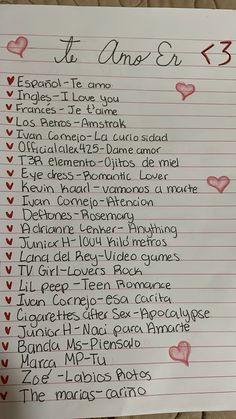 te Amo En <3
Español-Te amo
Ingles-I Love you
Frances-Je t'aime
Los Perros-Amstrak
Ivan Cornejo-La curiosidad
Officialalex425-Dame amor
T3R elemento-Ojitos de miel
Eye dress-Romantic Lover
Kevin Kaarl-vamonos a marte
Ivan Cornejo-Atencion
Deftones-Rosemary
Adrianne Lenker-Anything
Junior H-1004 Kilómetros
Lana del Rey-Video games
TV Girl-Lovers Rock
Lil peep-Teen Romance
Ivan Cornejo-esa carita
Cigarettes after Sex-Apocalypse
Junior H-Naci para Amarte
Banda Ms-Piensalo
Marca MP-Tu
Zoé-Labios Rotos
The marias-cariño